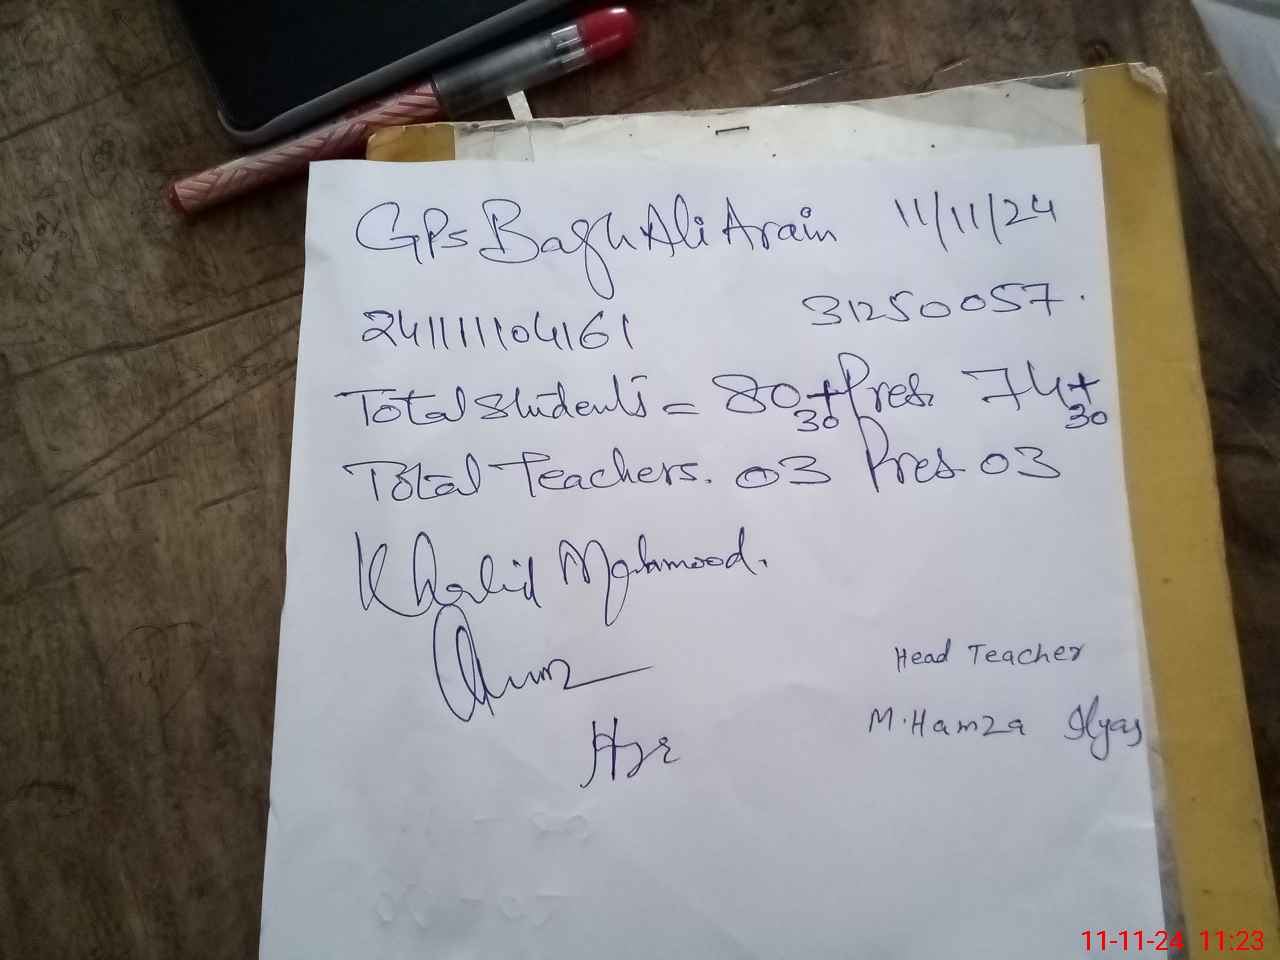 GPs Bagh Ali Arain 11/11/24
241111104161 31250057.
Total students = 80+30 Pres. 74+30
Total Teachers. 03 Pres 03
Khalid Mahmood.
Head Teacher
M.Hamza Ilyas
11-11-24 11:23